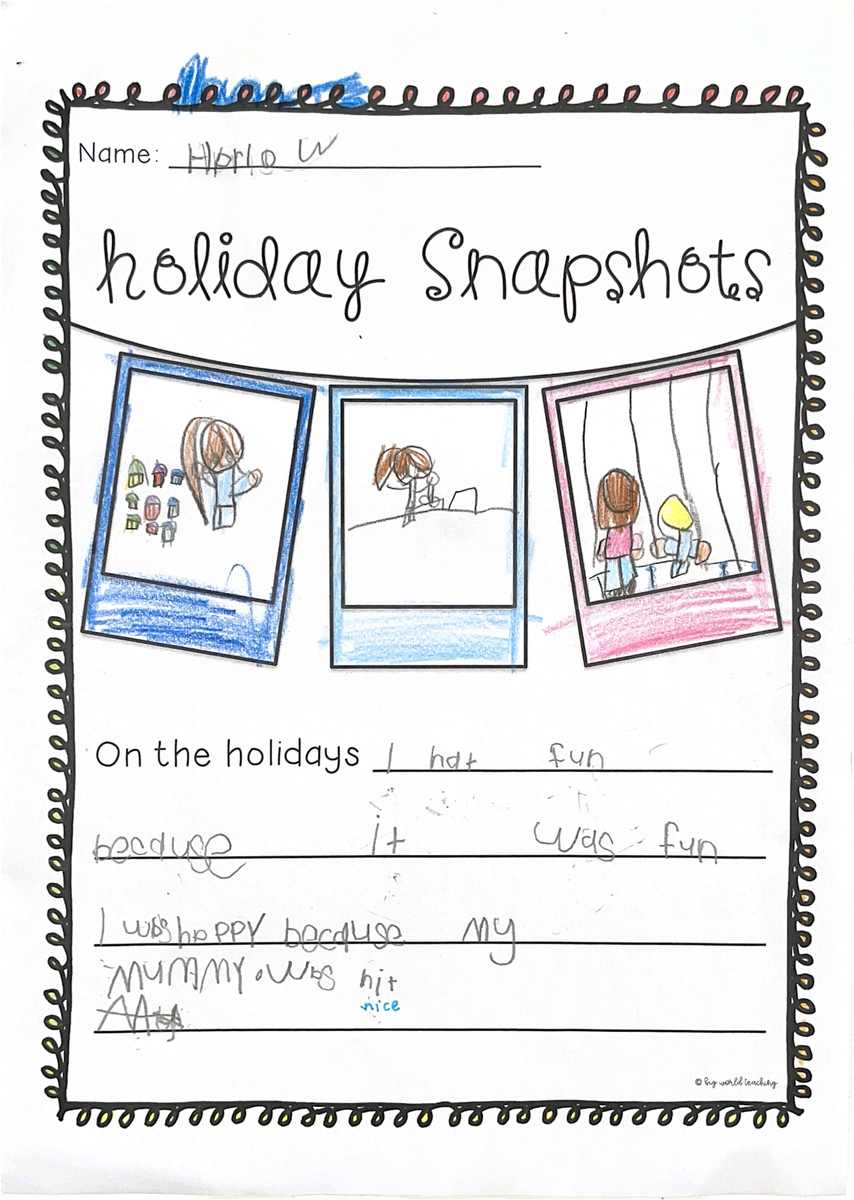 Name: Harlo W
holiday Snapshots
On the holidays I hat fun
because it was fun
I was happy because my
MUMMY was hit
nice
© big world teaching